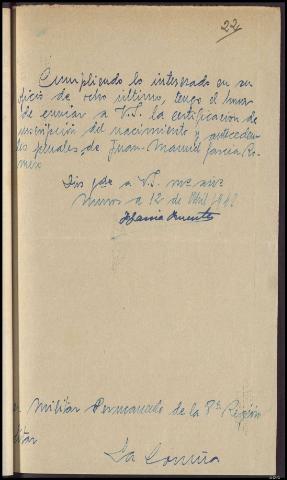 22
Cumpliendo lo interesado en su
oficio de ocho último, tengo el honor
de enviar a V.S. la certificacion de
inscripción del nacimiento y anteceden-
tes penales, de Juan Manuel García Ro-
mero
Dios gde a V.S. ms ans
Muros a 12 de Abril 1942
Militar Permanente de la 8ª Región
litar
La Coruña